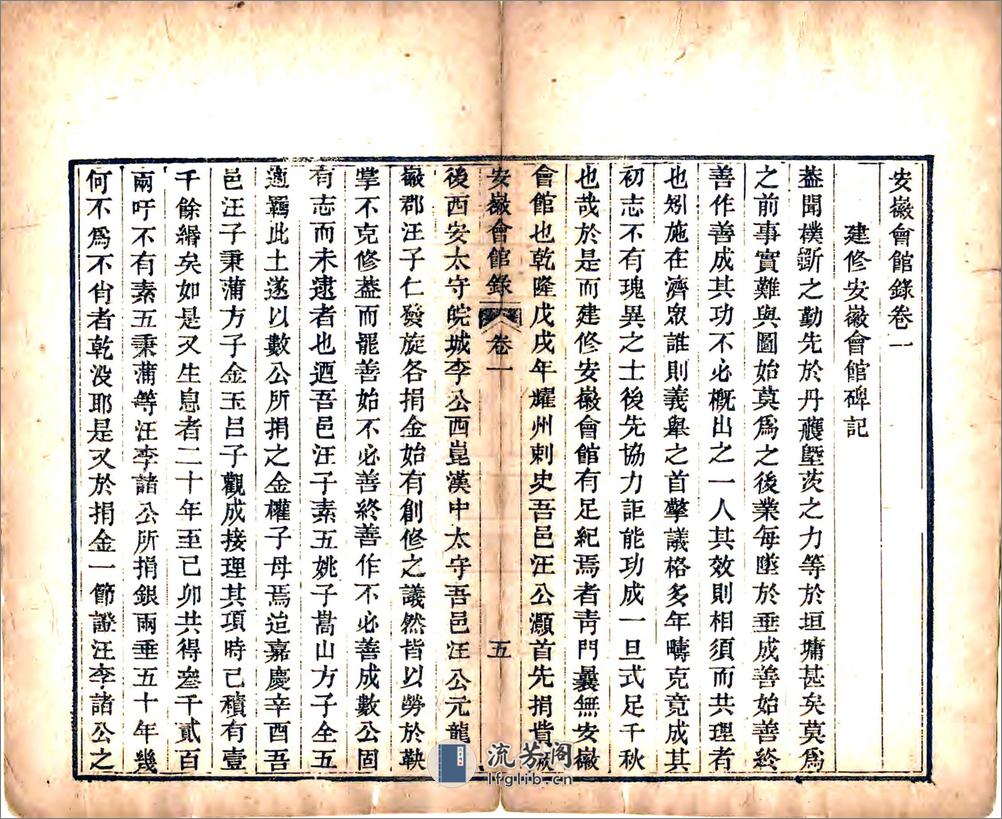 安徽會館錄卷一
建修安徽會館碑記
蓋聞樸斲之勤先於丹雘塈茨之力等於垣墉甚矣莫為
之前事實難與圖始莫為之後業每墜於垂成善始善終
善作善成其功不必概出之一人其效則相須而共理者
也矧施在濟眾誰則義舉之首擎議格多年疇克竟成其
初志不有瑰異之士後先協力詎能功成一旦式足千秋
也哉於是而建修安徽會館有足紀焉者青門曩無安徽
會館也乾隆戊戌年耀州刺史吾邑汪公灝首先捐貲
安徽會館錄 卷一 五
後西安太守皖城李公西崑漢中太守吾邑汪公元龍
徽郡汪子仁發旋各捐金始有創修之議然皆以勞於鞅
掌不克修葢而罷善始不必善終善作不必善成數公固
有志而未逮者也迺吾邑汪子素五姚子嵩山方子全五
適羈此土遂以數公所捐之金權子母焉迨嘉慶辛酉吾
邑汪子秉蒲方子金玉呂子觀成接理其項時已積有壹
千餘緡矣如是又生息者二十年至己卯共得叁千貳百
兩吁不有素五秉蒲等汪李諸公所捐銀兩垂五十年幾
何不為不肖者乾沒耶是又於捐金一節證汪李諸公之
流芳閣
lfglib.cn